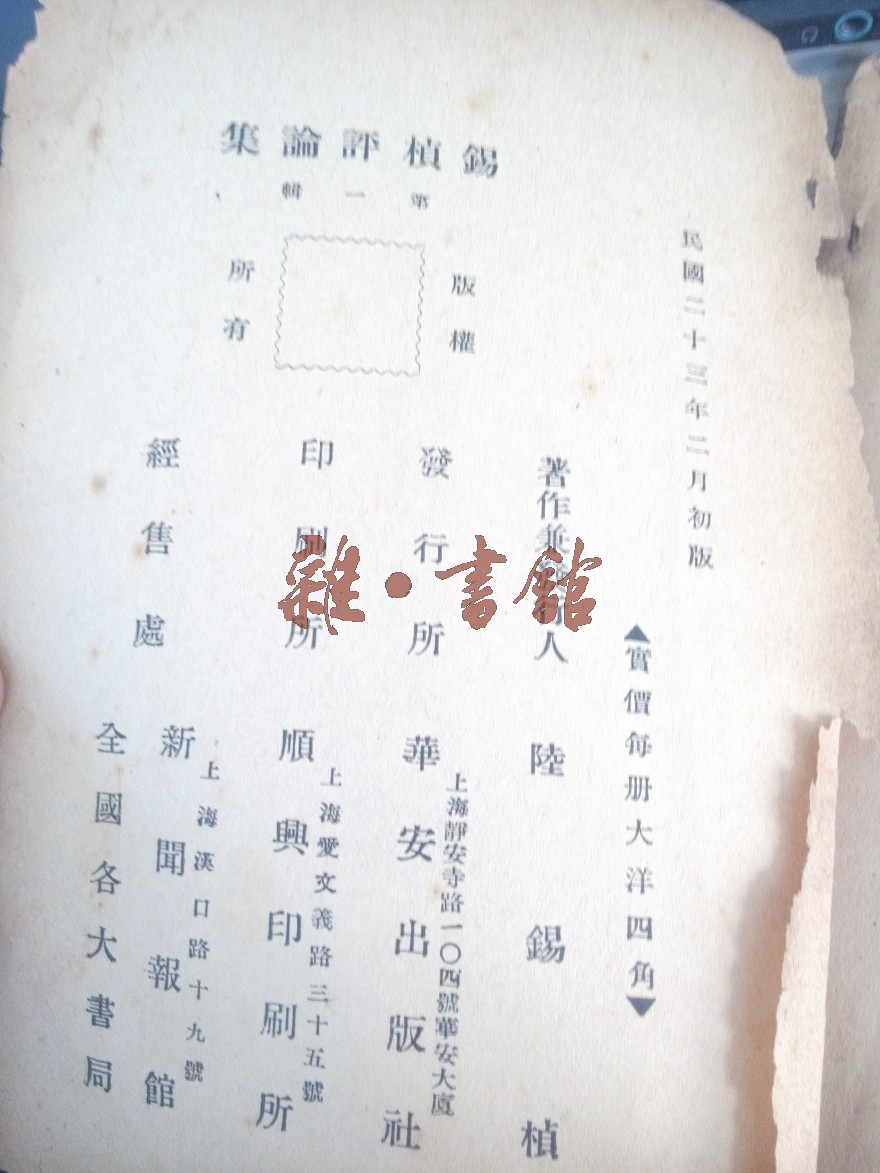 民國二十三年二月初版
▲實價每册大洋四角▼
錫楨評論集
第一輯
版權
所有
著作兼發行人 陸錫楨
發行所 華安出版社
上海靜安寺路一〇四號華安大廈
印刷所 順興印刷所
上海愛文義路三十五號
經售處 新聞報館
上海漢口路十九號
全國各大書局
雜·書館